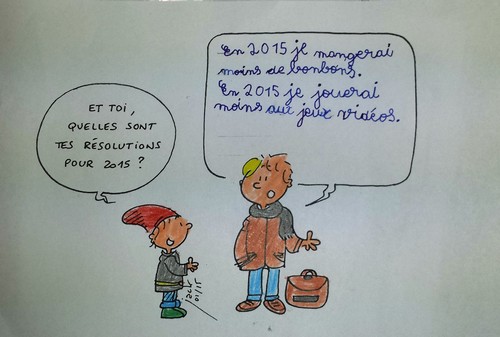 ET TOI,
QUELLES SONT
TES RÉSOLUTIONS
POUR 2015 ?
En 2015 je mangerai
moins de bonbons.
En 2015 je jouerai
moins aux jeux vidéos.
JACK
01/15